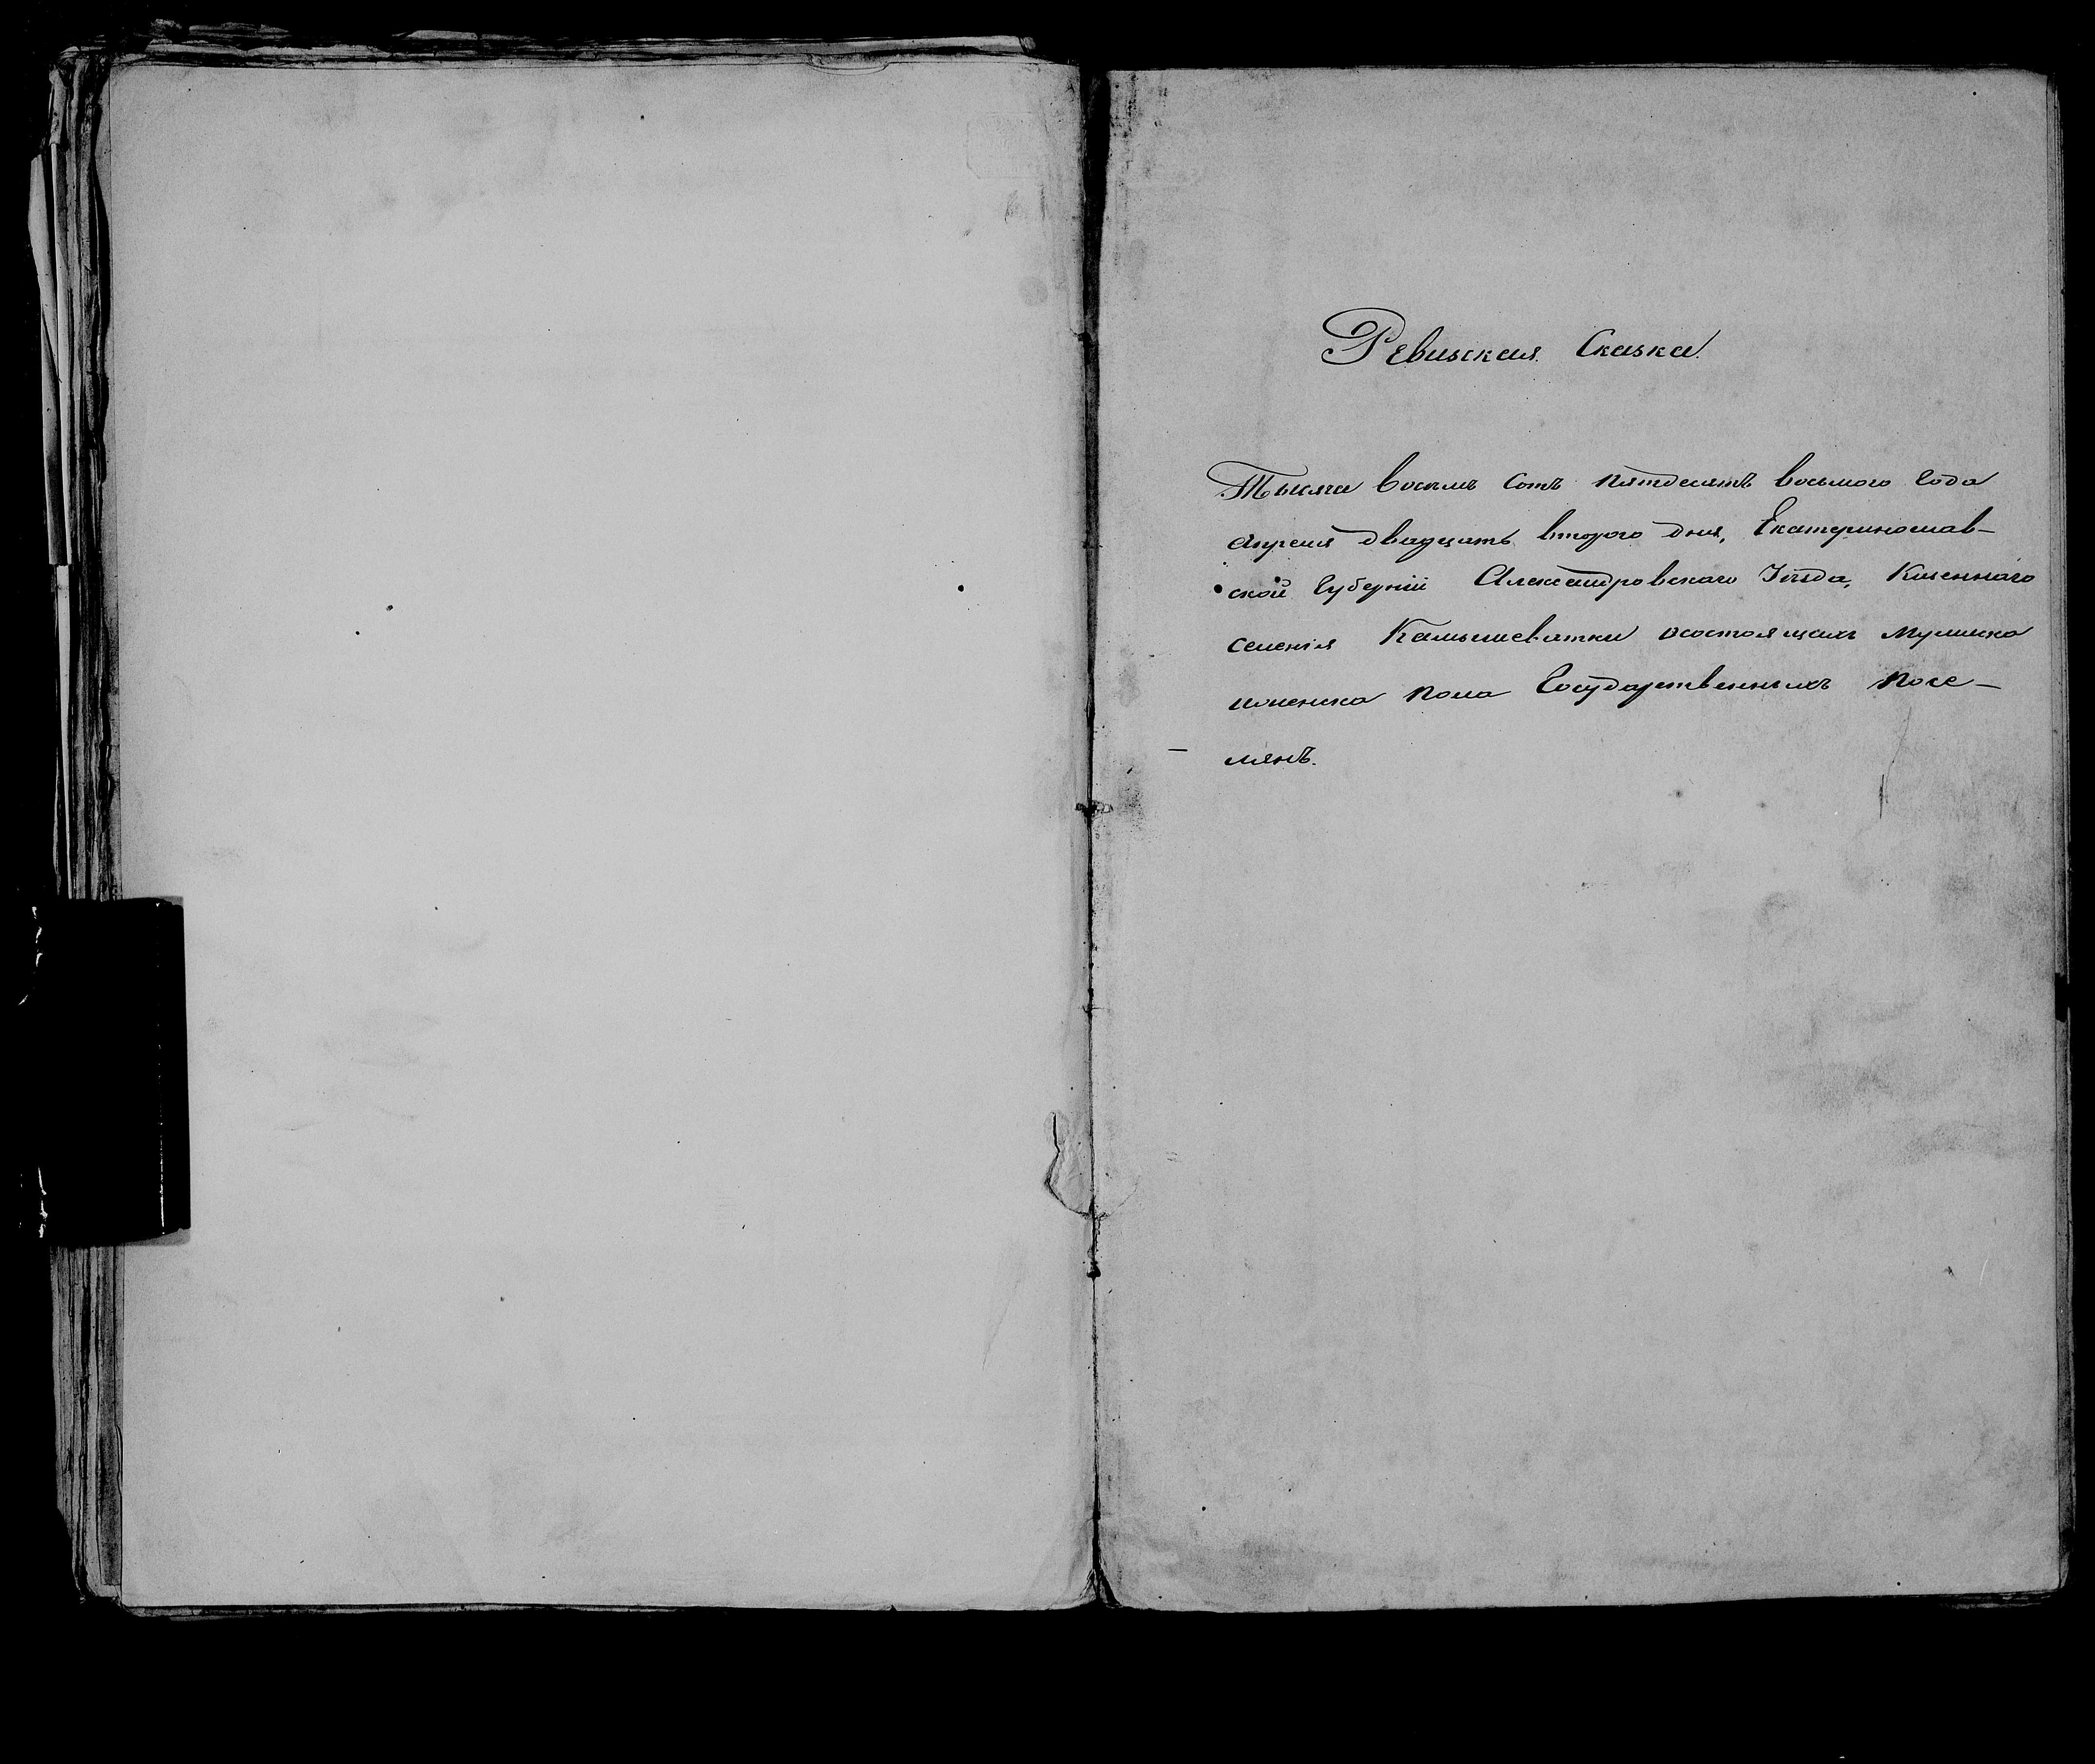 Ревизская Сказка
Тысяча восемь сотъ пятдесятъ восьмого года
апреля двадцать второго дня, Екатеринослав-
ской Губерніи Александровскаго Уѣзда, Казеннаго
селенія Камышеватки о состоящихъ мужеска
и женска пола Государственныхъ посе-
лянъ.